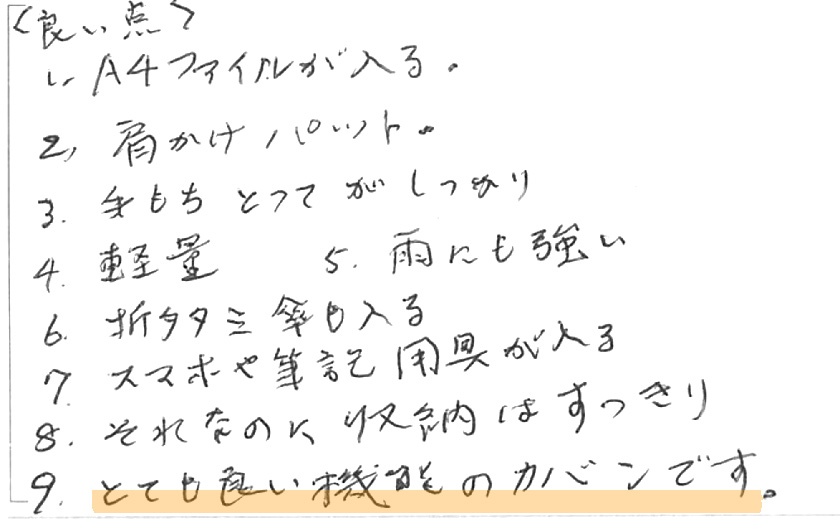 〈良い点〉
1. A4ファイルが入る。
2. 肩かけパット。
3. 手もちとってがしっかり
4. 軽量　5. 雨にも強い
6. 折タタミ傘も入る
7. スマホや筆記用具が入る
8. それなのに収納はすっきり
9. とても良い機能のカバンです。